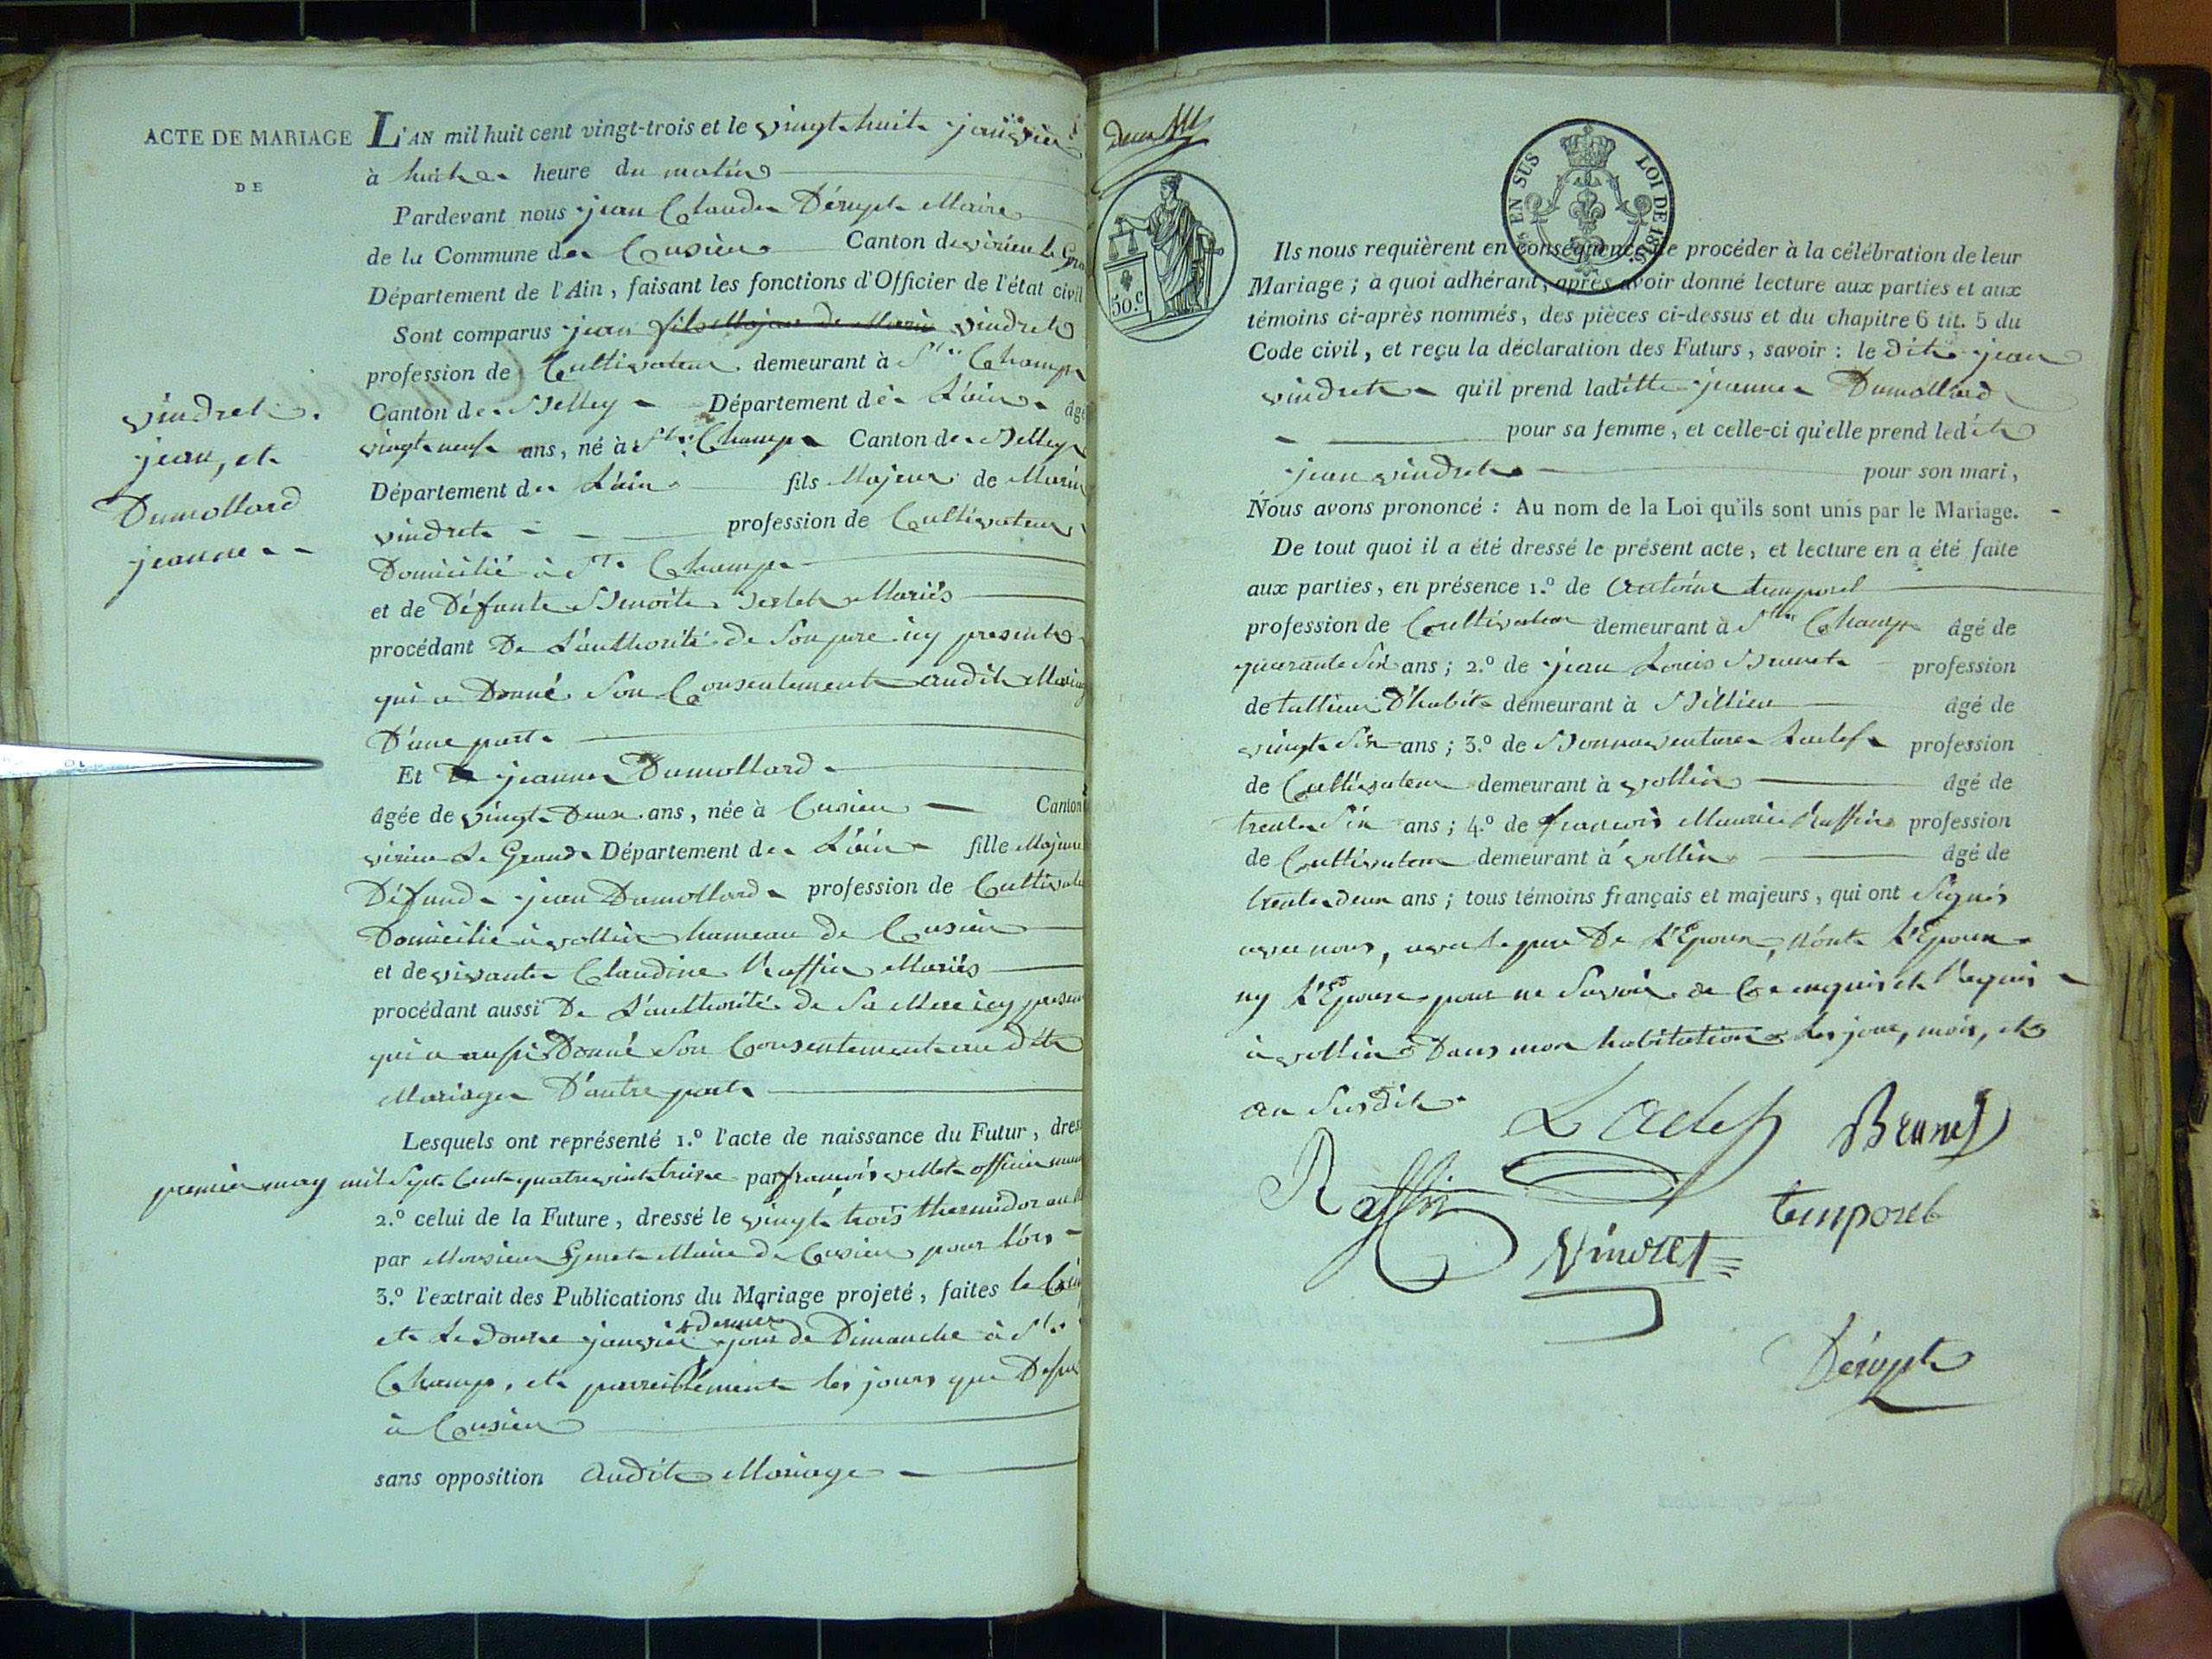 ACTE DE MARIAGE
DE
vindret.
jean, et
Dumollard
jeanne
L'AN mil huit cent vingt-trois et le vingt huit janvier
à huit heure du matin
Pardevant nous jean Claude Dérupt Maire
de la Commune de Cusieu Canton de virieu le Gra
Département de l'Ain, faisant les fonctions d'Officier de l'état civil
Sont comparus jean fils Majeur de Marin vindret
profession de Cultivateur demeurant à Ste Champ
Canton de Belley Département de L'ain âgé
vingt neuf ans, né à Ste Champ Canton de Belley
Département de L'ain fils Majeur de Marin
vindret profession de Cultivateur
Domicilié à Ste Champ
et de Défunte Benoite Mariés
procédant De L'authorité de Son pere icy present
qui a Donné Son Consentement audit Mariag
D'une part
Et jeanne Dumollard
âgée de vingt Deux ans, née à Cusieu Canton
virieu Le Grand Département de L'ain fille Majeure
Défund jean Dumollard profession de Cultivate
Domicilié à vollin hameau de Cusieu
et de vivante Claudine Raffin Mariés
procédant aussi De L'authorité de Sa Mere icy presen
qui a aussi Donné Son Consentement au dit
Mariage D'autre part
Lesquels ont représenté 1.º l'acte de naissance du Futur, dres
premier may mil Sept Cent quatre vint treise par françois vellet officier mun
2.º celui de la Future, dressé le vingt trois thermidor an
par Monsieur Genet Maire de Cusieu pour lors
3.º l'extrait des Publications du Mariage projeté, faites le Cin
et Le Douse janvier dernier jour de Dimanche à Ste
Champ, et pareillement les jours que Dessus
à Cusieu
sans opposition Audit Mariage
deux
50.c
EN SUS LOI DE 1816.
Ils nous requièrent en conséquence de procéder à la célébration de leur
Mariage; à quoi adhérant, après avoir donné lecture aux parties et aux
témoins ci-après nommés, des pièces ci-dessus et du chapitre 6 tit. 5 du
Code civil, et reçu la déclaration des Futurs, savoir: le dit jean
vindret qu'il prend laditte jeanne Dumollard
pour sa femme, et celle-ci qu'elle prend ledit
jean vindret pour son mari,
Nous avons prononcé: Au nom de la Loi qu'ils sont unis par le Mariage.
De tout quoi il a été dressé le présent acte, et lecture en a été faite
aux parties, en présence 1.º de Antoine temporel
profession de Cultivateur demeurant à Ste Champ âgé de
quarante Six ans; 2.º de jean Louis Brunet profession
de tallieur D'habit demeurant à Billieu âgé de
vingt Six ans; 3.º de Bonnaventure Ladef profession
de Cultivateur demeurant à vollin âgé de
trente Six ans; 4.º de françois Maurice Raffin profession
de Cultivateur demeurant à vollin âgé de
trente deux ans; tous témoins français et majeurs, qui ont Signés
avec nous, avec Le pere De L'Epoux, Nont L'Epoux
ny L'Epouse pour ne Savoir de Ce enquis et Requis
à vollin Dans mon habitation Les jour, mois, et
an Susdit
Ladef Brunet
Raffin
temporel
vindret
Dérupt